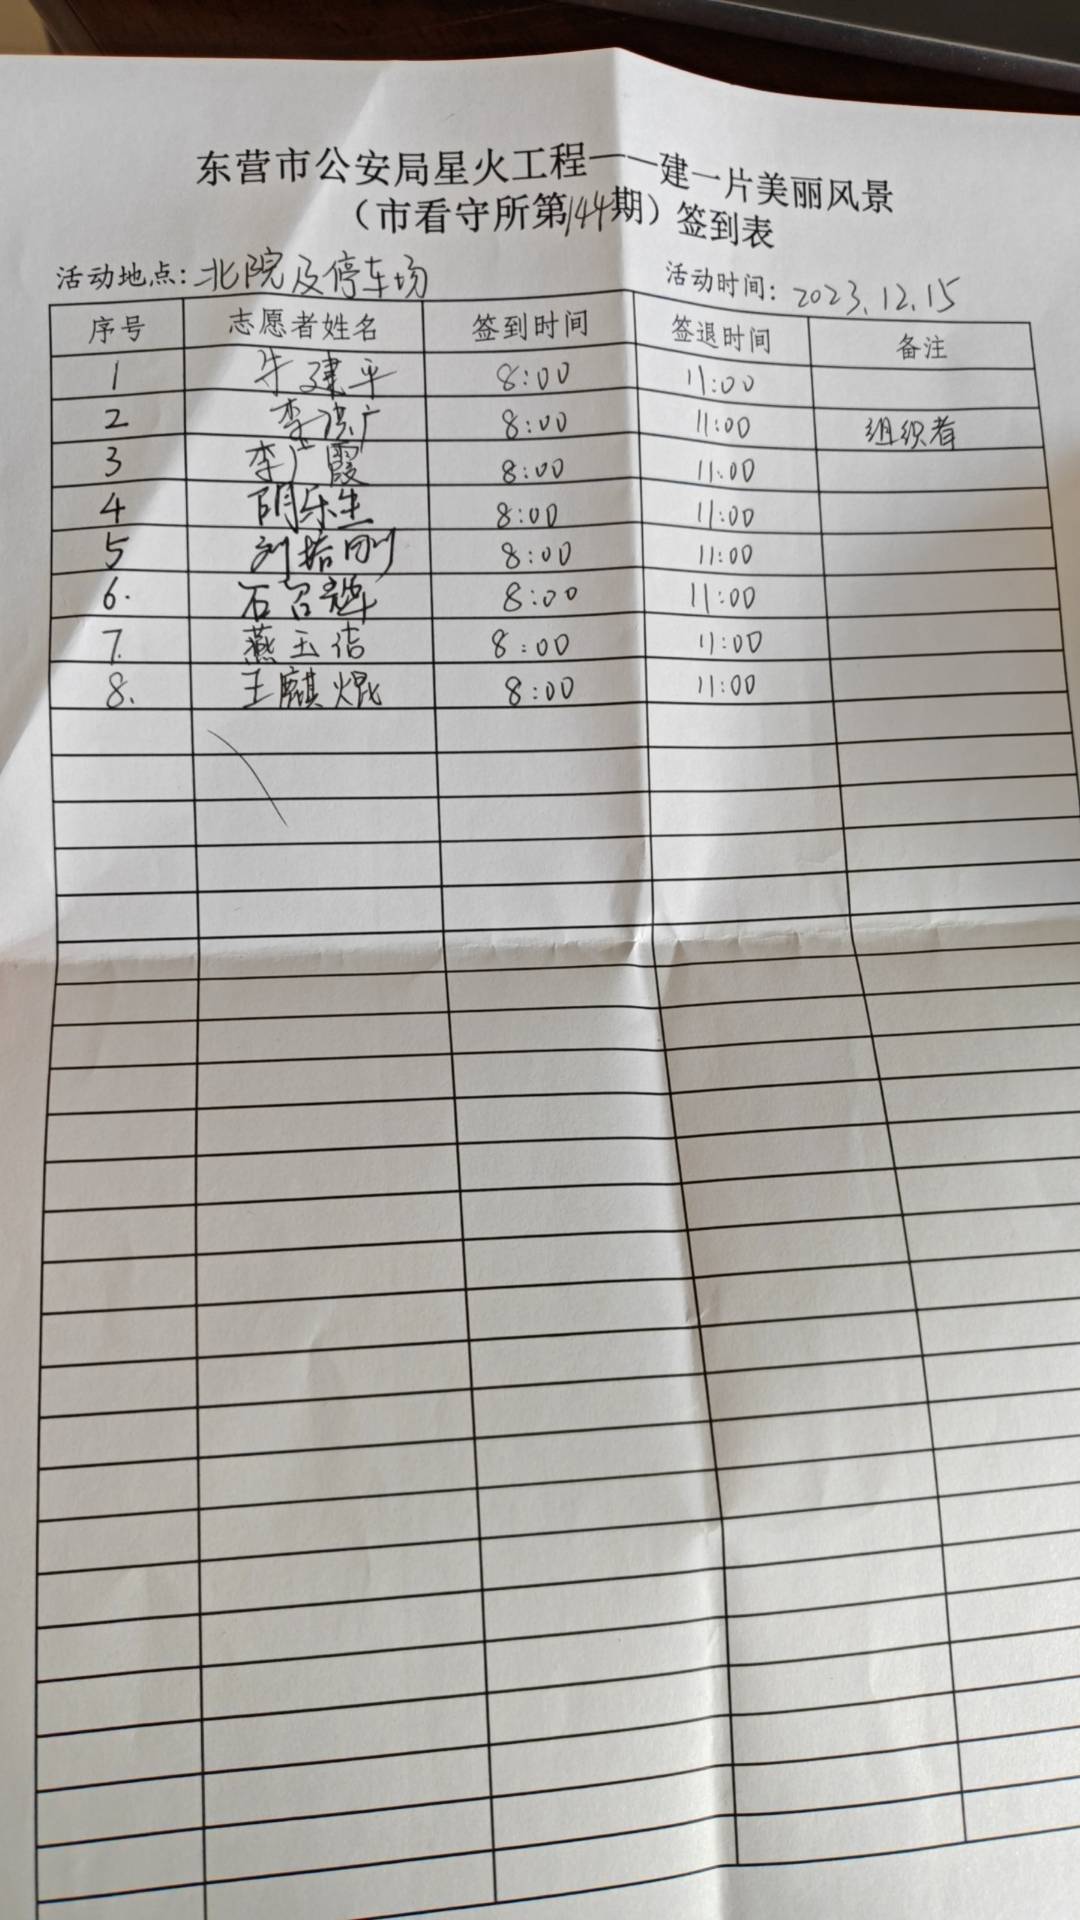 东营市公安局星火工程——建一片美丽风景
（市看守所第144期）签到表
活动地点：北院及停车场 活动时间：2023.12.15
序号 志愿者姓名 签到时间 签退时间 备注
1 牛建平 8:00 11:00
2 李洪广 8:00 11:00 组织者
3 李广霞 8:00 11:00
4 阴乐生 8:00 11:00
5 刘培刚 8:00 11:00
6. 石召辉 8:00 11:00
7. 燕玉洁 8:00 11:00
8. 王麒焜 8:00 11:00